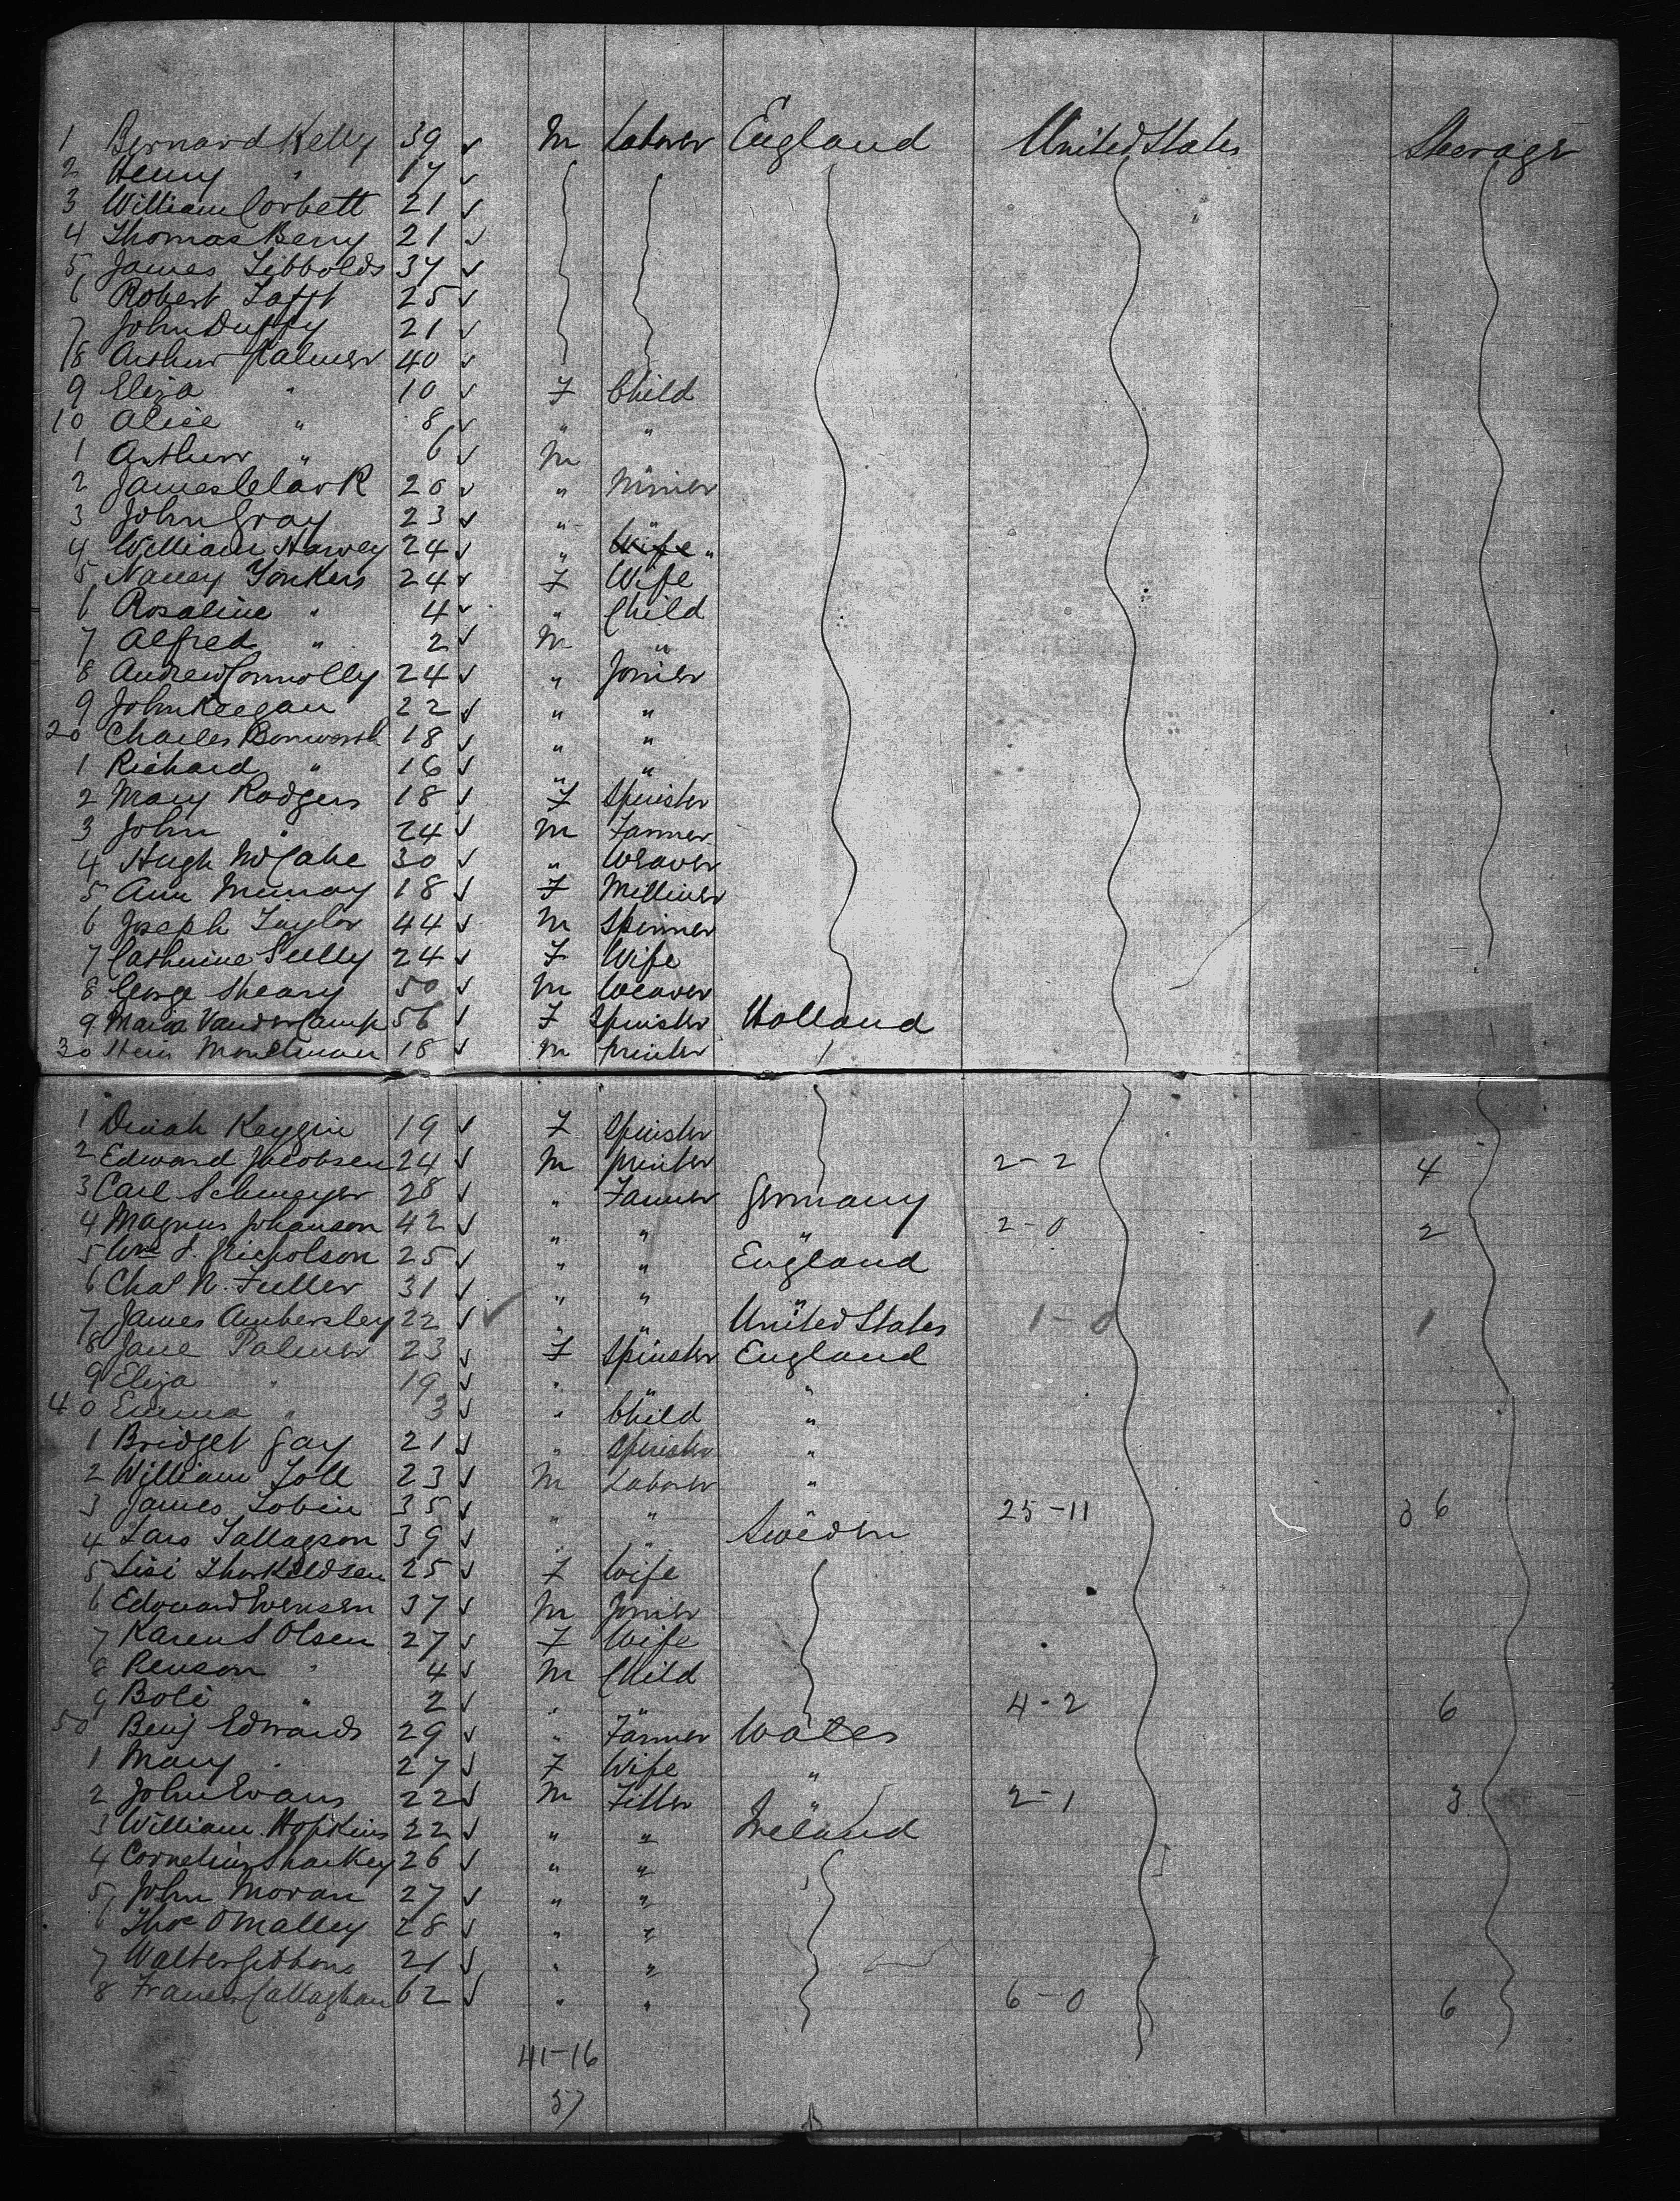 1 Bernard Kelly 39 ✓ M Laborer England United States Steerage
2 Henry " 17 ✓
3 William Corbett 21 ✓
4 Thomas Berry 21 ✓
5 James Tibbolds 37 ✓
6 Robert Tafft 25 ✓
7 John Duffy 21 ✓
8 Arthur Palmer 40 ✓
9 Eliza " 10 ✓ F Child
10 Alice " 8 ✓ " "
1 Arthur " 6 ✓ M "
2 James Clark 20 ✓ " Miner
3 John Gray 23 ✓ " "
4 William Harvey 24 ✓ " Wife "
5 Nancy Yonkers 24 ✓ F Wife
6 Rosaline " 4 ✓ " Child
7 Alfred " 2 ✓ M "
8 Andrew Connolly 24 ✓ " Joiner
9 John Keegan 22 ✓ " "
20 Charles Bonworth 18 ✓ " "
1 Richard " 16 ✓ " "
2 Mary Rodgers 18 ✓ F Spinster
3 John " 24 ✓ M Farmer
4 Hugh McCabe 30 ✓ " Weaver
5 Ann Murray 18 ✓ F Milliner
6 Joseph Taylor 44 ✓ M Spinner
7 Catherine Seelly 24 ✓ F Wife
8 George Sheary 50 ✓ M Weaver
9 Maria VanderCamp 56 ✓ F Spinster Holland
30 Hein 18 ✓ M printer
1 Dinah Keygin 19 ✓ F Spinster
2 Edward Jacobsen 24 ✓ M printer 2-2 4
3 Carl Schmeyer 28 ✓ " Farmer Germany
4 Magnus Johanson 42 ✓ " " " 2-0 2
5 Wm S. Nicholson 25 ✓ " " England
6 Chas N. Fuller 31 ✓ " " "
7 James Ambersley 22 ✓ ✓ " " United States 1-0 1
8 Jane Palmer 23 ✓ F Spinster England
9 Eliza " 19 ✓ " " "
40 Emma " 3 ✓ " Child "
1 Bridget Gay 21 ✓ " Spinster "
2 William Toll 23 ✓ M Laborer "
3 James Tobin 35 ✓ " " " 25-11 36
4 Lars Tallagson 39 ✓ " " Sweden
5 Lisi Thorkildsen 25 ✓ F Wife
6 Edouard Evensen 37 ✓ M Joiner
7 Karen S Olsen 27 ✓ F Wife
8 Penson " 4 ✓ M Child
9 Boli " 2 ✓ " " 4-2 6
50 Benj Edwards 29 ✓ " Farmer Wales
1 Mary " 27 ✓ F Wife "
2 John Evans 22 ✓ M Fitter " 2-1 3
3 William Hopkins 22 ✓ " " Ireland
4 Cornelius Sharkey 26 ✓ " "
5 John Moran 27 ✓ " "
6 Thos OMalley 28 ✓ " "
7 Walter Gibbons 21 ✓ " "
8 Francis Callaghan 62 ✓ " " 6-0 6
41-16
57